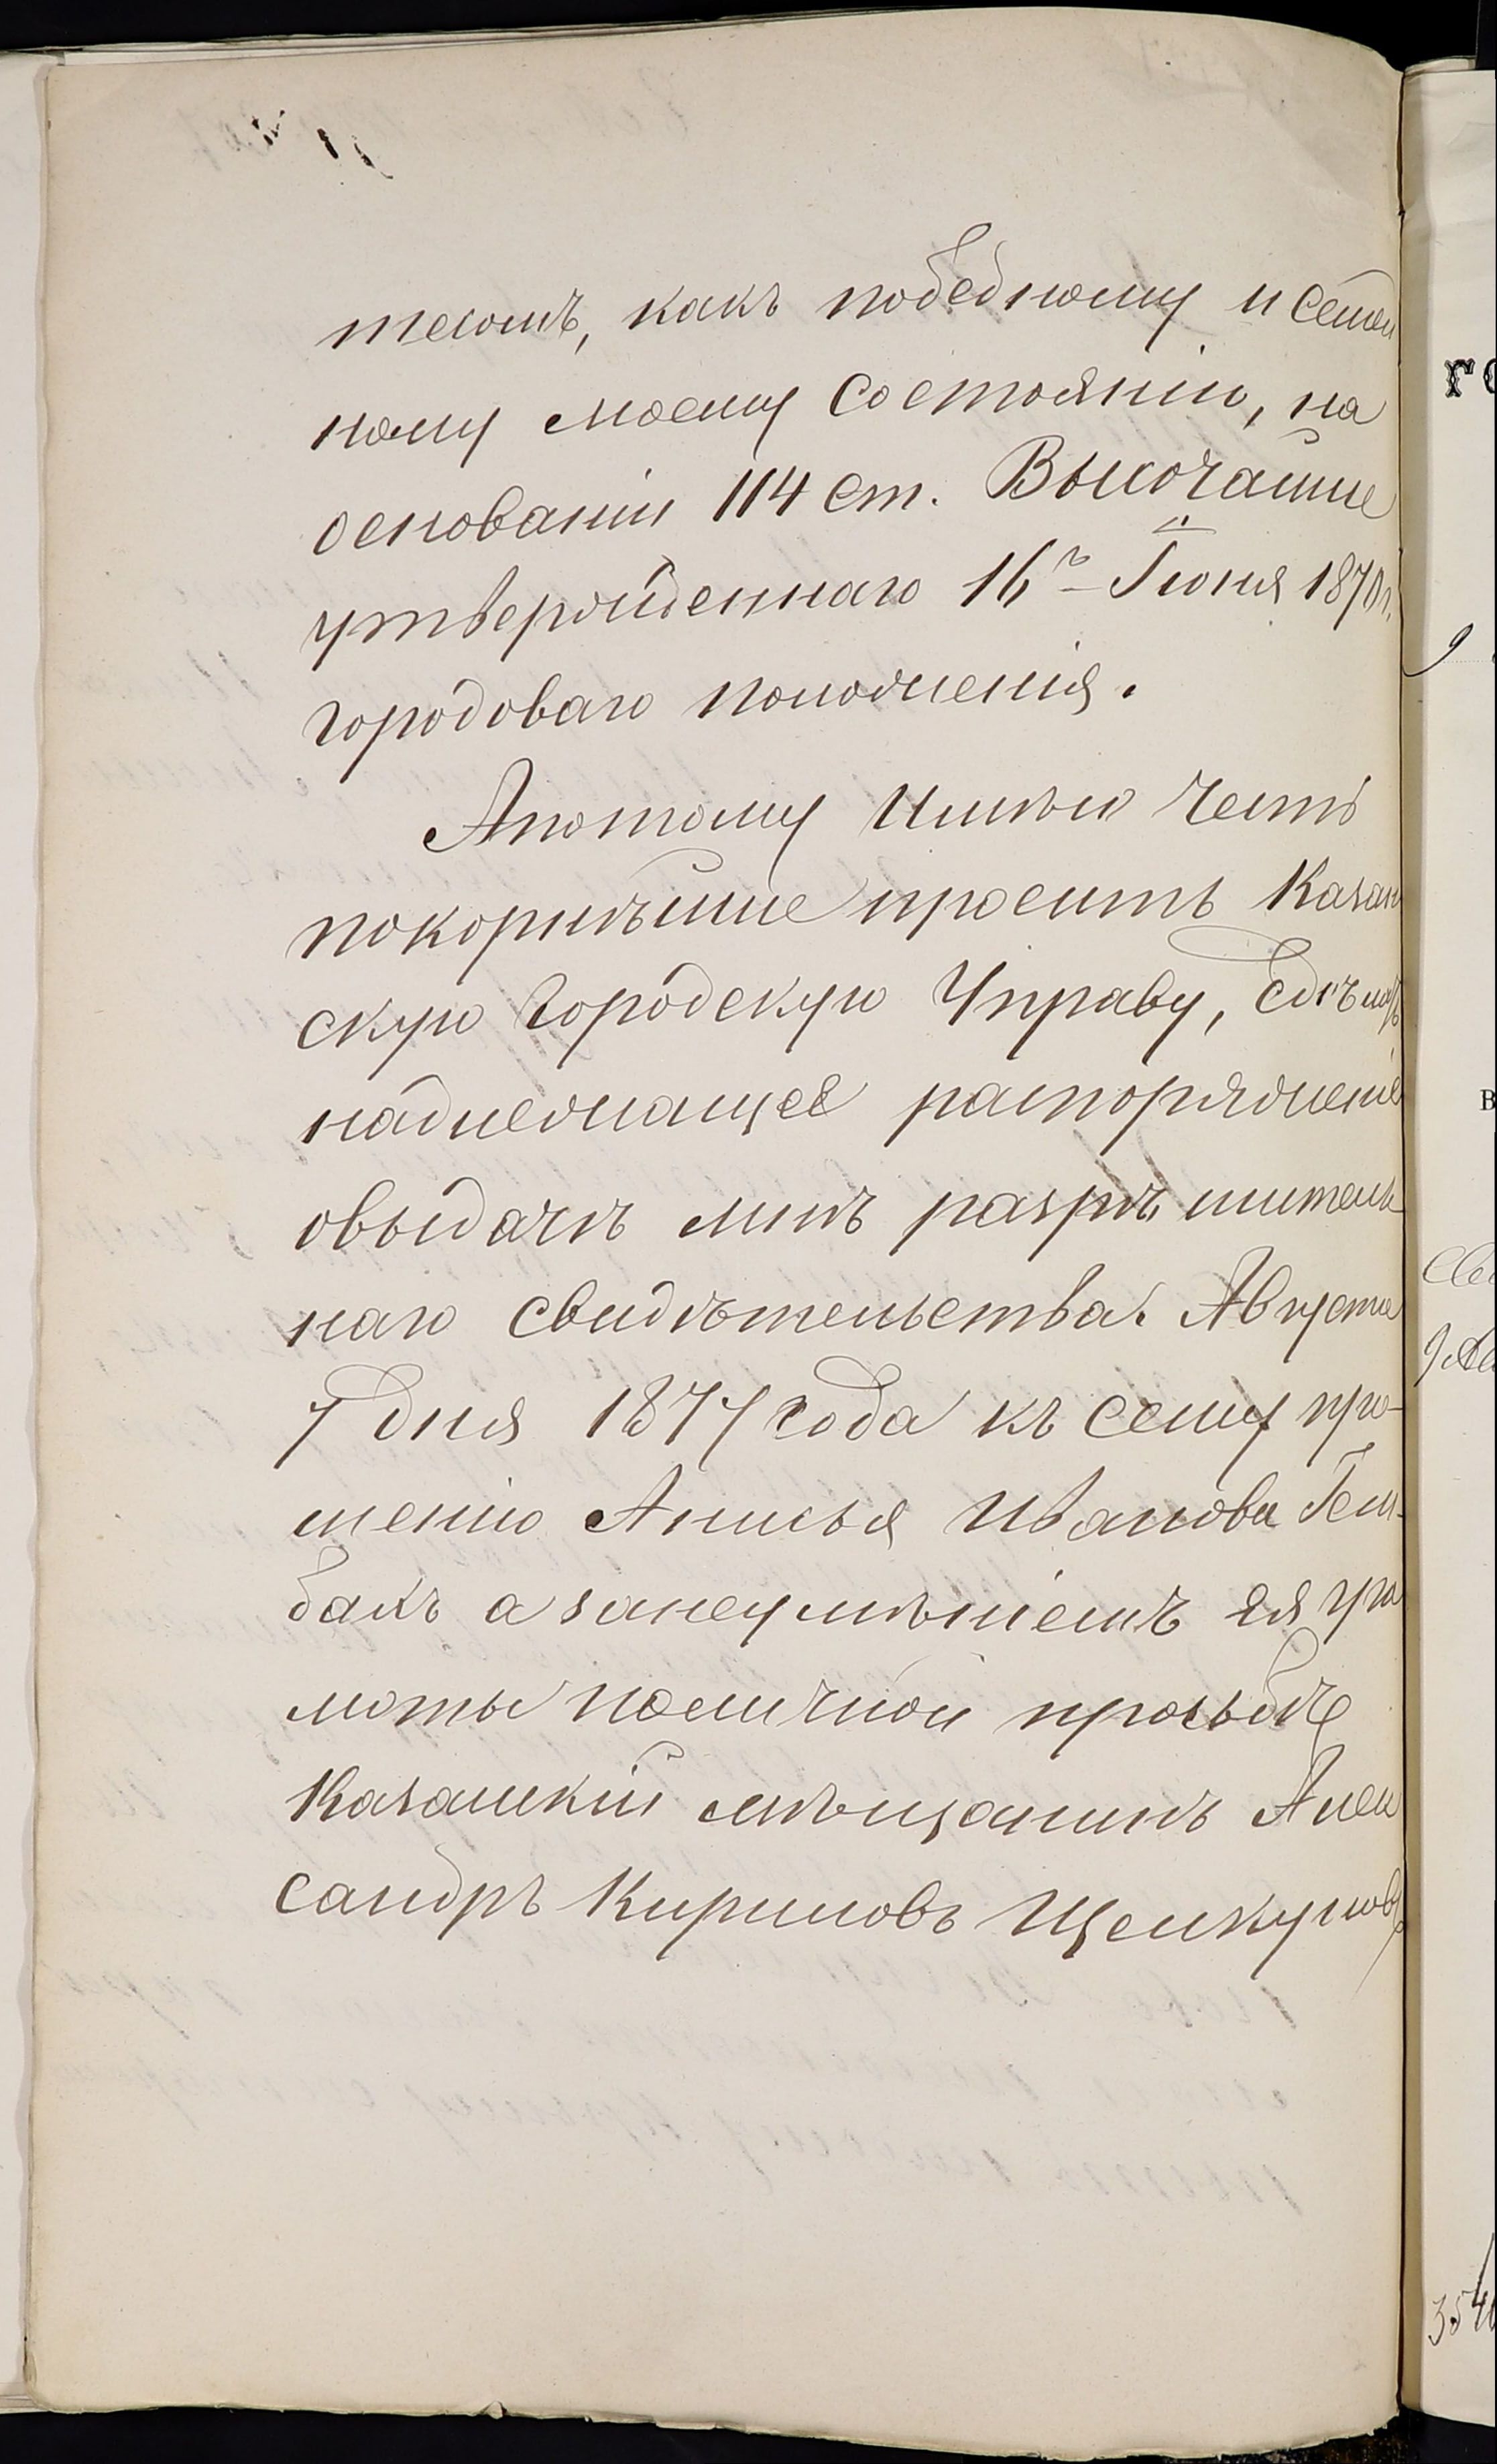 теломъ, какъ побѣдному и семей
ному моему состоянію, на
основаніи 114 ст. Высочайше
утвержденнаго 16го Іюня 1870 г.
городоваго положенія.
Апотому имѣю честь
покорнѣйше просить Казан
скую Городскую Управу, сдѣлать
надлежащее распоряженіе
овыдачѣ мнѣ разрѣшитель
наго свидѣтельства. Августа
7 дня 1877 года къ сему про-
шенію Анисья Иванова Гель-
бакъ а занеумѣніемъ ея гра
моты поличной просьбѣ
Казанскій мѣщанинъ Алек
сандръ Кириловъ Щелкуновъ